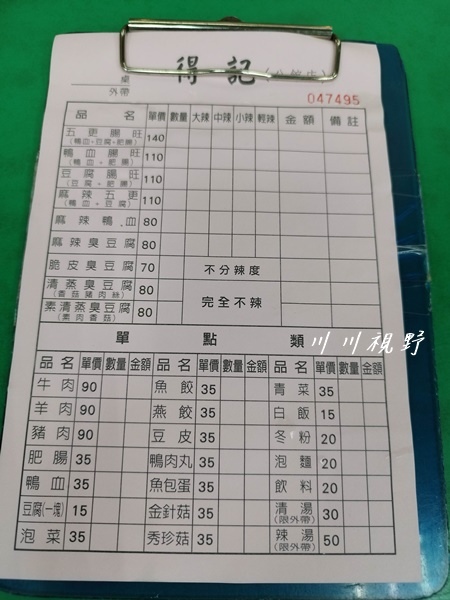 得記
桌
外帶
047495
品名 單價 數量 大辣 中辣 小辣 輕辣 金額 備註
五更腸旺 140
(鴨血+豆腐+肥腸)
鴨血腸旺 110
(鴨血+肥腸)
豆腐腸旺 110
(豆腐+肥腸)
麻辣五更 110
(鴨血+豆腐)
麻辣鴨血 80
麻辣臭豆腐 80
脆皮臭豆腐 70 不分辣度
清蒸臭豆腐 80 完全不辣
(香菇豬肉絲)
素清蒸臭豆腐 80
(素肉香菇)
單點類
川川視野
品名 單價 數量 金額 品名 單價 數量 金額 品名 單價 數量 金額
牛肉 90 魚餃 35 青菜 35
羊肉 90 燕餃 35 白飯 15
豬肉 90 豆皮 35 冬粉 20
肥腸 35 鴨肉丸 35 泡麵 20
鴨血 35 魚包蛋 35 飲料 20
豆腐(一塊) 15 金針菇 35 清湯 30
(限外帶)
泡菜 35 秀珍菇 35 辣湯 50
(限外帶)